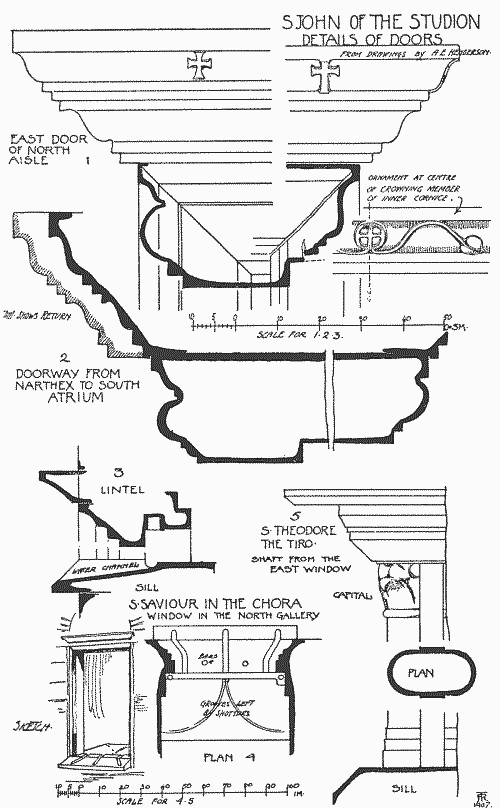 S JOHN OF THE STUDION
DETAILS OF DOORS
FROM DRAWINGS BY A.E. HENDERSON.
EAST DOOR
OF NORTH
AISLE 1
ORNAMENT AT CENTRE
OF CROWNING MEMBER
OF INNER CORNICE.
SHOWS RETURN
10 5 0 10 20 30 40 50
SCALE FOR 1·2·3.
2
DOORWAY FROM
NARTHEX TO SOUTH
ATRIUM
3
LINTEL
WATER CHANNEL
SILL
5
S·THEODORE
THE TIRO·
SHAFT FROM THE
EAST WINDOW
CAPITAL
PLAN
SILL
S·SAVIOUR IN THE CHORA
WINDOW IN THE NORTH GALLERY
BARS
GROOVES LEFT
BY SHUTTERS
SKETCH·
PLAN 4
10 5 0 10 20 30 40 50 60 70 80 90 100
1M.
SCALE FOR 4·5
1907